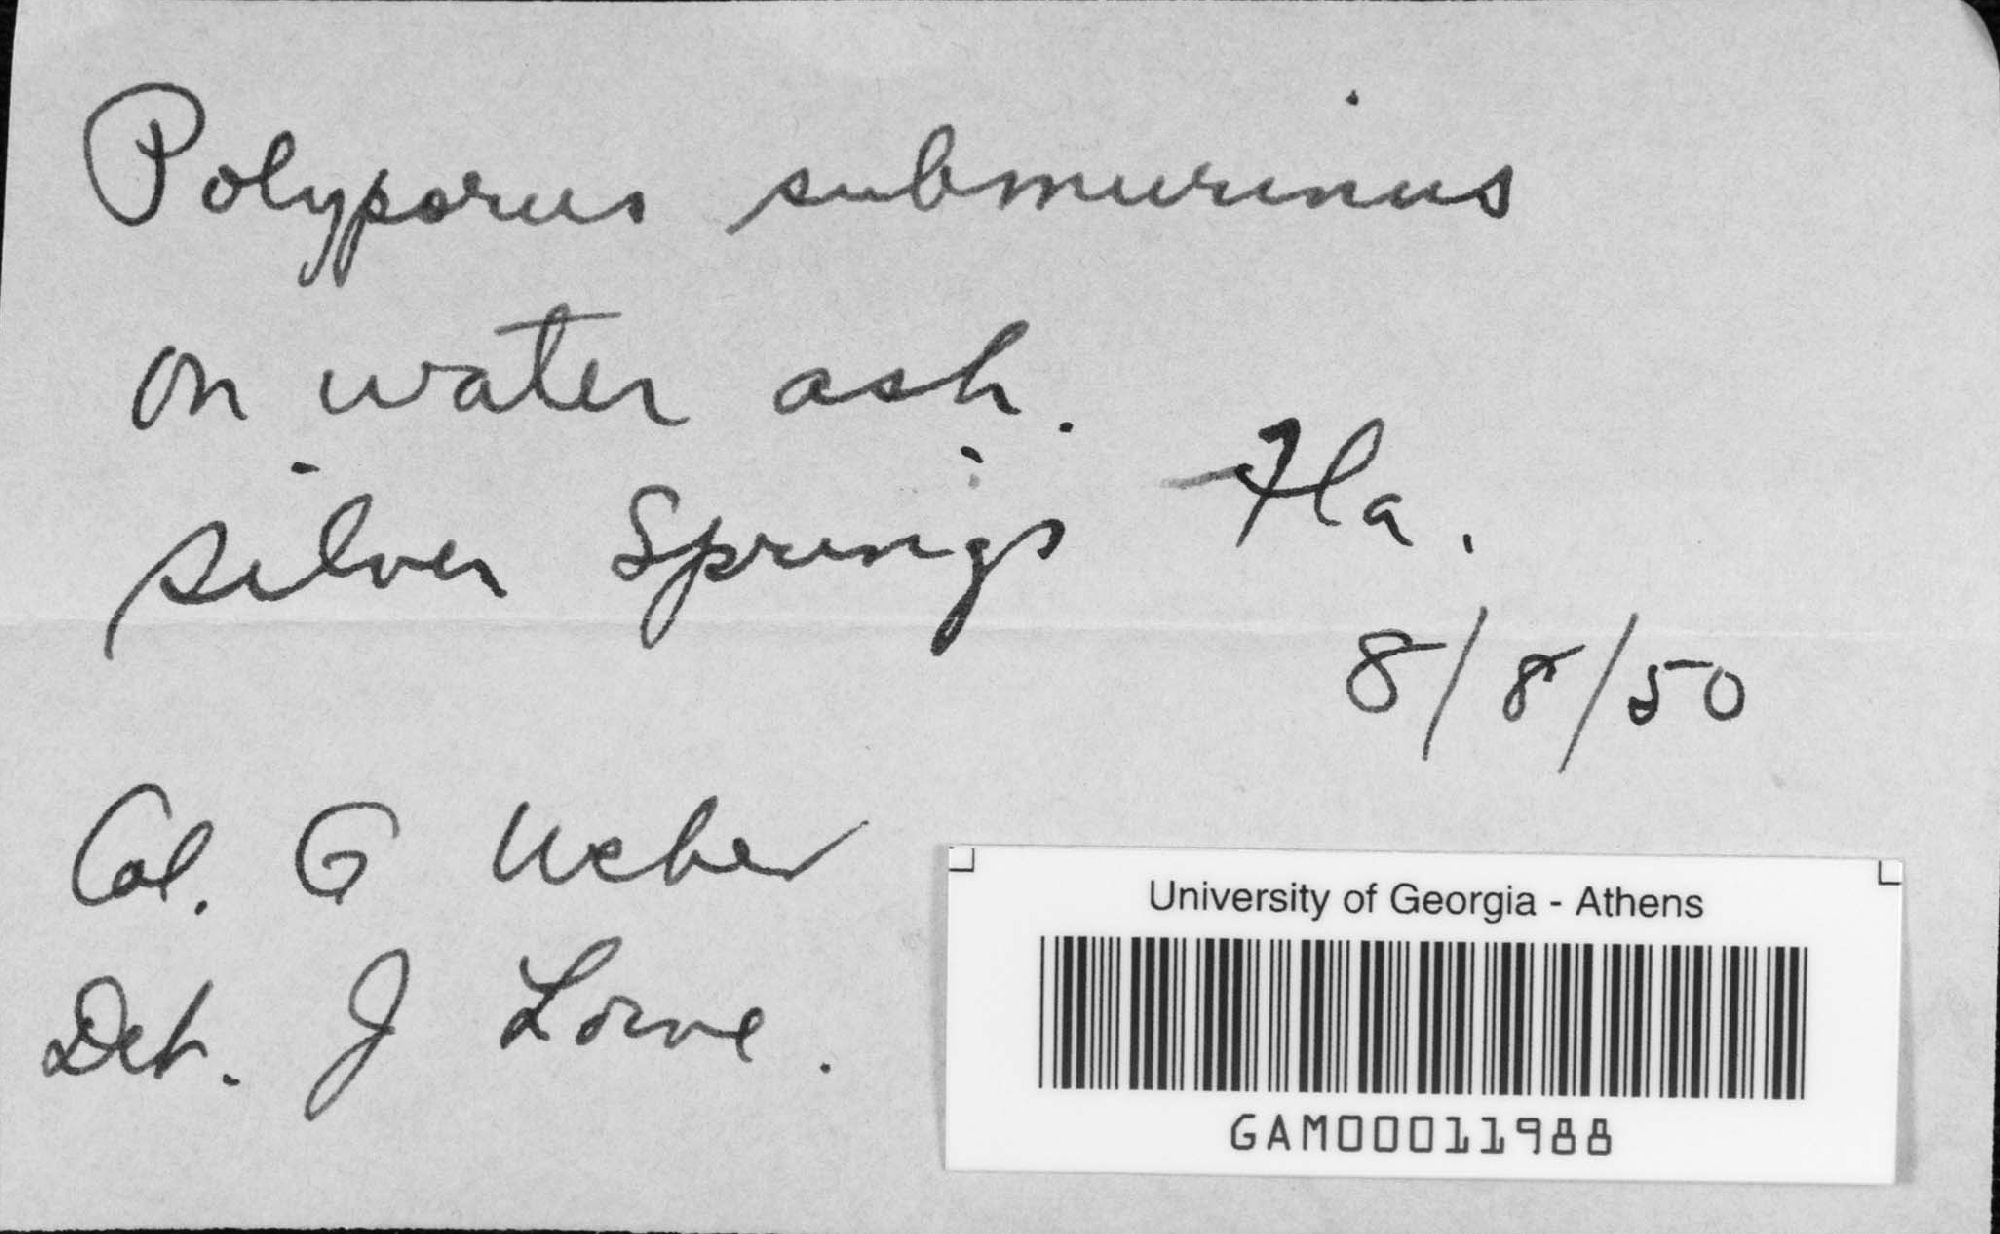 Polyporus submurinus
on water ash.
Silver Springs Fla.
8/8/50
Col. G Weber
Det. J Lowe.
University of Georgia - Athens
GAM00011988